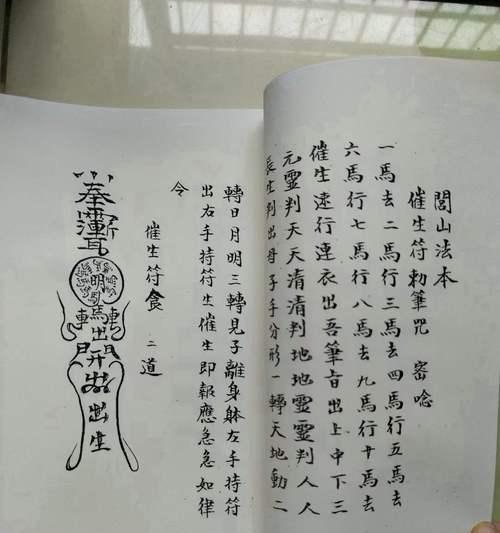 閭山法本
催生符勅筆咒 密唸
一馬去二馬行三馬去四馬行五馬去
六馬行七馬行八馬去九馬行十馬去
催生速行連衣出吾筆旨出上中下三
元靈判天天清清判地地靈靈判人人
長生判出母子手分形一轉天地動二
轉日月明三轉見子離身躰左手持符
出右手持符生催生即報應急急如律
令
催生符食 二道
奉
明
馬出
開
出生